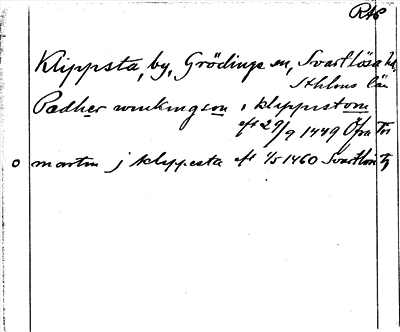 RAP
Klippsta, by, Grödinge sn, Svartlösa hd,
Sthlms län
Pædher wnukingson i klippistom
eft 29/9 1449 Öfra Tör
o martin j klyppesta eft 1/5 1460 Svartlösa